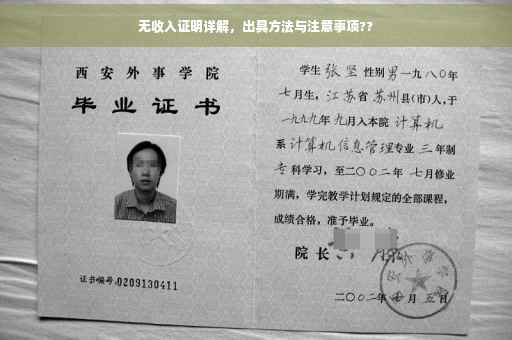 无收入证明详解，出具方法与注意事项??
西安外事学院
毕业证书
证书编号:0209130411
学生 张坚 性别 男 一九八0年
七月生，江苏省 苏州县(市)人,于
一九九九年 九月入本院 计算机
系 计算机信息管理专业 三 年制
专 科学习，至二〇〇二年 七月修业
期满，学完教学计划规定的全部课程，
成绩合格，准予毕业。
院长
二〇〇二年 月 五日